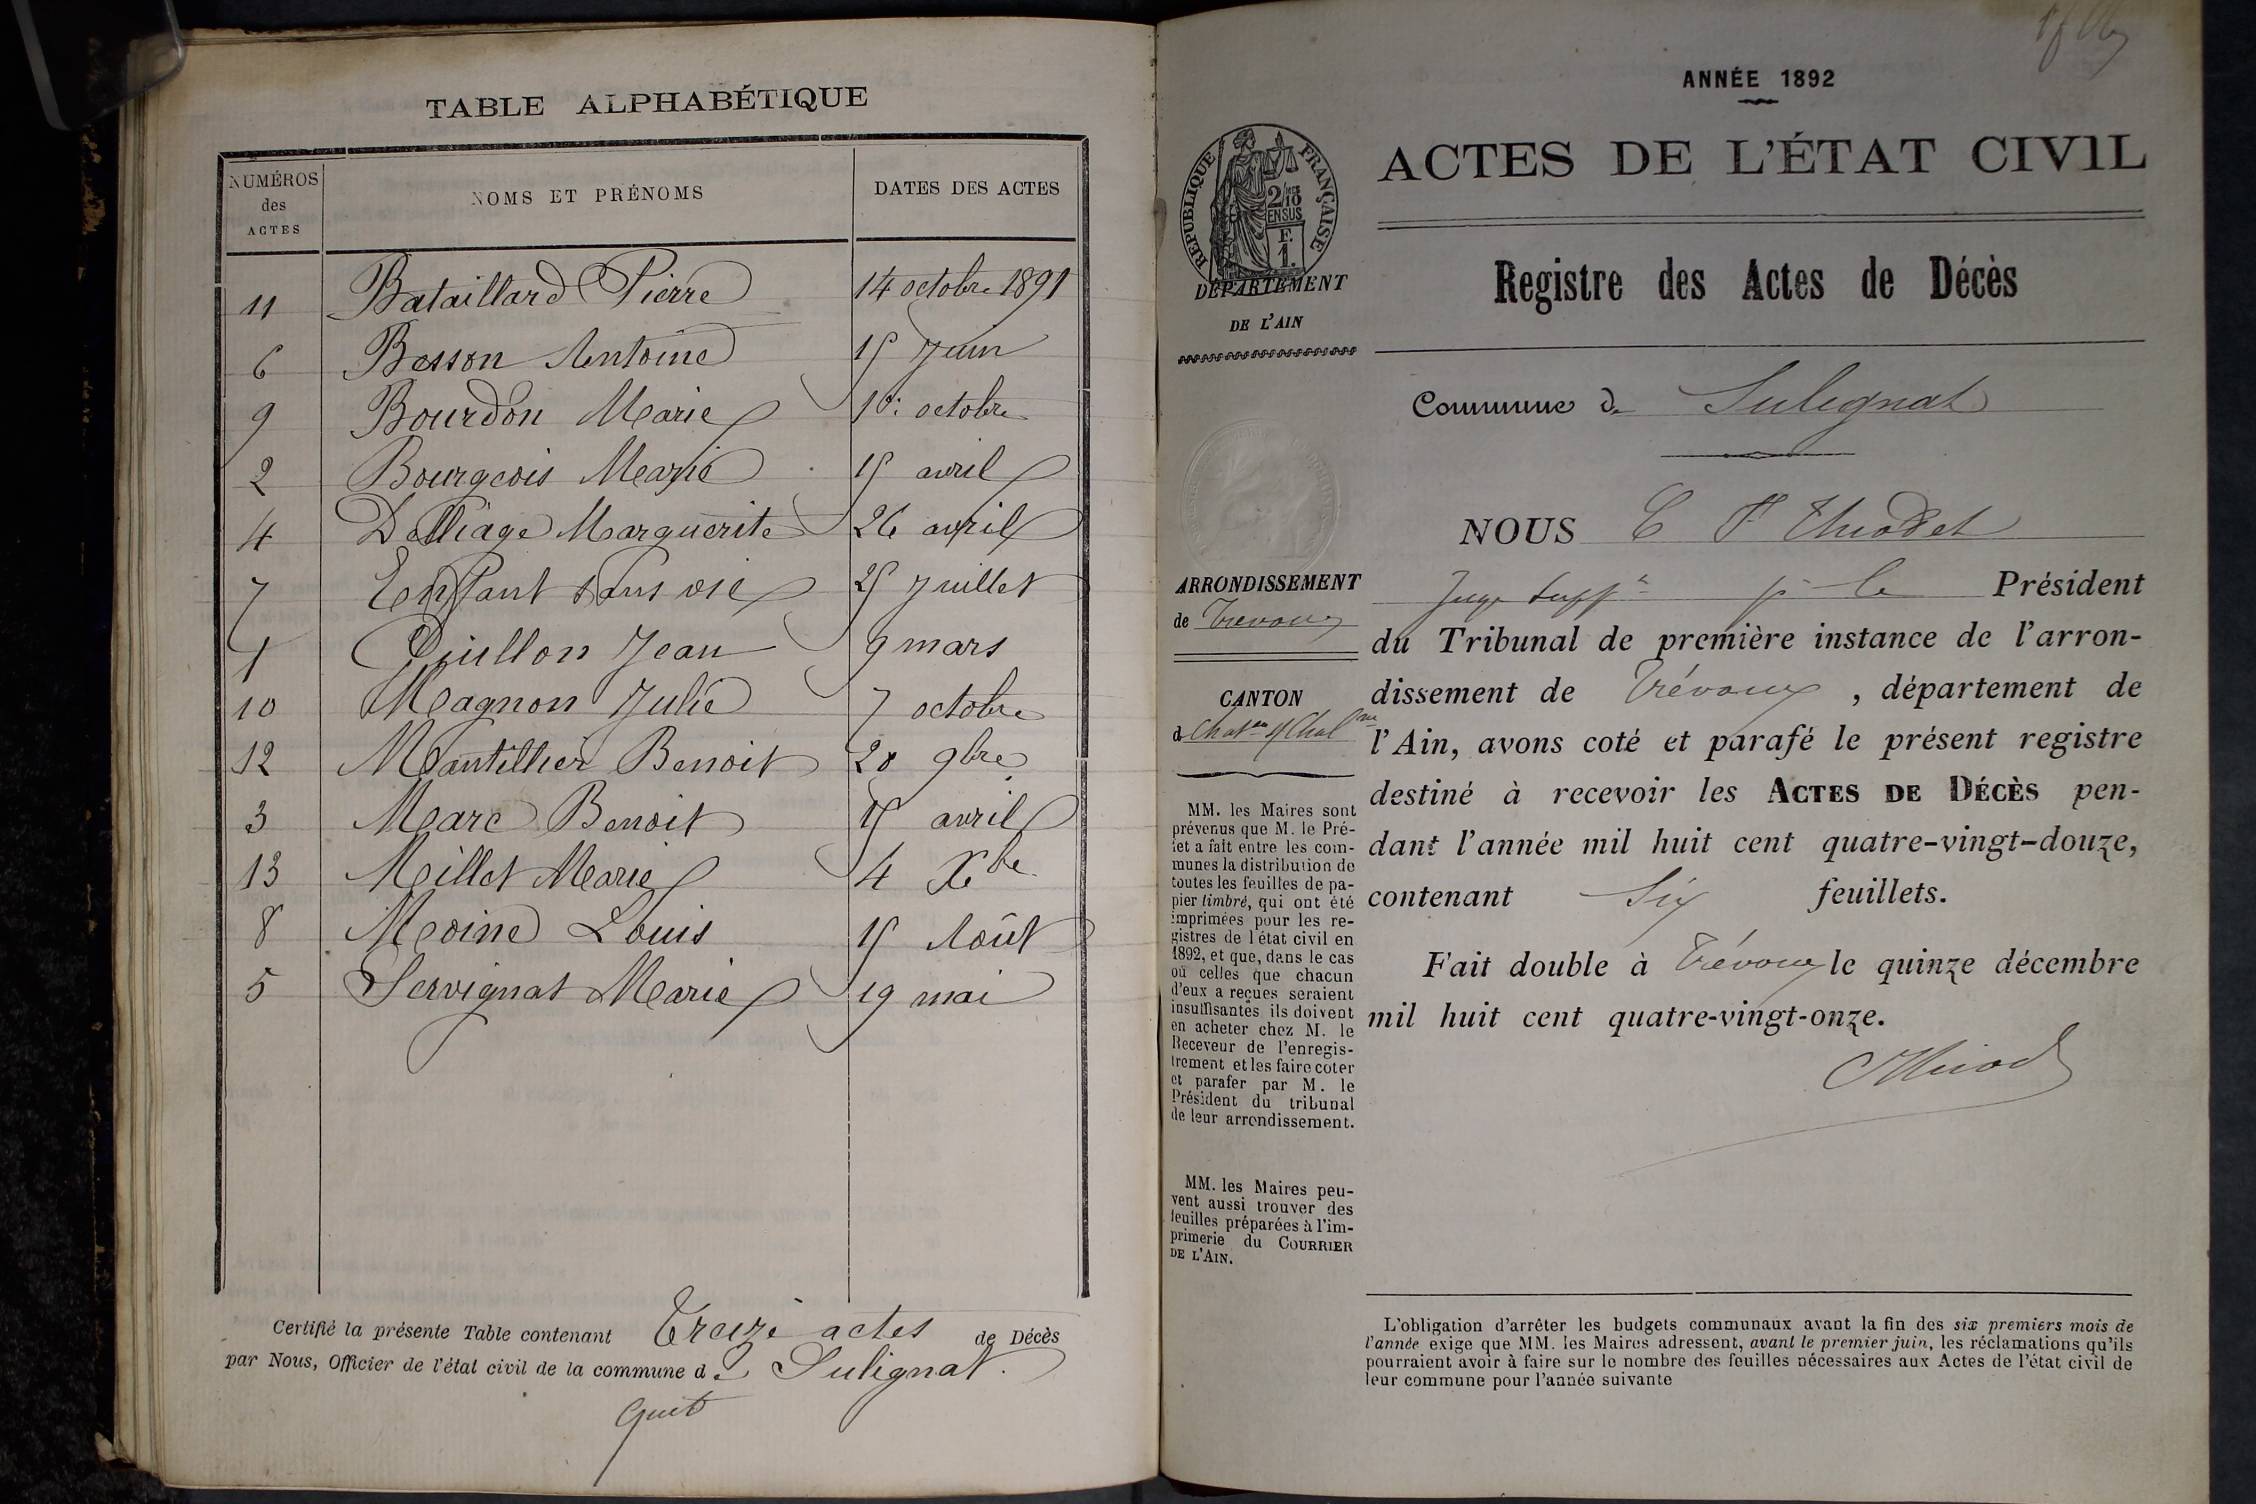 TABLE ALPHABÉTIQUE
NUMÉROS
des
ACTES
NOMS ET PRÉNOMS
DATES DES ACTES
11 Bataillard Pierre 14 octobre 1891
6 Besson Antoine 15 Juin
9 Bourdon Marie 1er octobre
2 Bourgeois Marie 15 avril
4 Delliage Marguerite 26 avril
7 Enfant sans vie 25 Juillet
1 Guillon Jean 9 mars
10 Magnon Julie 7 octobre
12 Mantillier Benoit 20 9bre
3 Marc Benoit 15 avril
13 Millet Marie 4 Xbre
8 Moine Louis 15 Août
5 Servignat Marie 19 mai
Certifié la présente Table contenant Treize actes de Décès
par Nous, Officier de l'état civil de la commune d e Sulignat.
ANNÉE 1892
RÉPUBLIQUE FRANÇAISE
2/10
EN SUS
F.
1.
DÉPARTEMENT
DE L'AIN
ACTES DE L'ÉTAT CIVIL
Registre des Actes de Décès
Commune de Sulignat
ARRONDISSEMENT
de Trévoux
CANTON
d Chat.on s/ Chal.nne
MM. les Maires sont
prévenus que M. le Pré-
fet a fait entre les com-
munes la distribution de
toutes les feuilles de pa-
pier timbré, qui ont été
imprimées pour les re-
gistres de l'état civil en
1892, et que, dans le cas
où celles que chacun
d'eux a reçues seraient
insuffisantes ils doivent
en acheter chez M. le
Receveur de l'enregis-
trement et les faire coter
et parafer par M. le
Président du tribunal
de leur arrondissement.
MM. les Maires peu-
vent aussi trouver des
feuilles préparées à l'im-
primerie du COURRIER
DE L'AIN.
NOUS C F Thiodet
Juge supp.t p. le Président
du Tribunal de première instance de l'arron-
dissement de Trévoux, département de
l'Ain, avons coté et parafé le présent registre
destiné à recevoir les ACTES DE DÉCÈS pen-
dant l'année mil huit cent quatre-vingt-douze,
contenant Six feuillets.
Fait double à Trévoux le quinze décembre
mil huit cent quatre-vingt-onze.
L'obligation d'arrêter les budgets communaux avant la fin des six premiers mois de
l'année exige que MM. les Maires adressent, avant le premier juin, les réclamations qu'ils
pourraient avoir à faire sur le nombre des feuilles nécessaires aux Actes de l'état civil de
leur commune pour l'année suivante